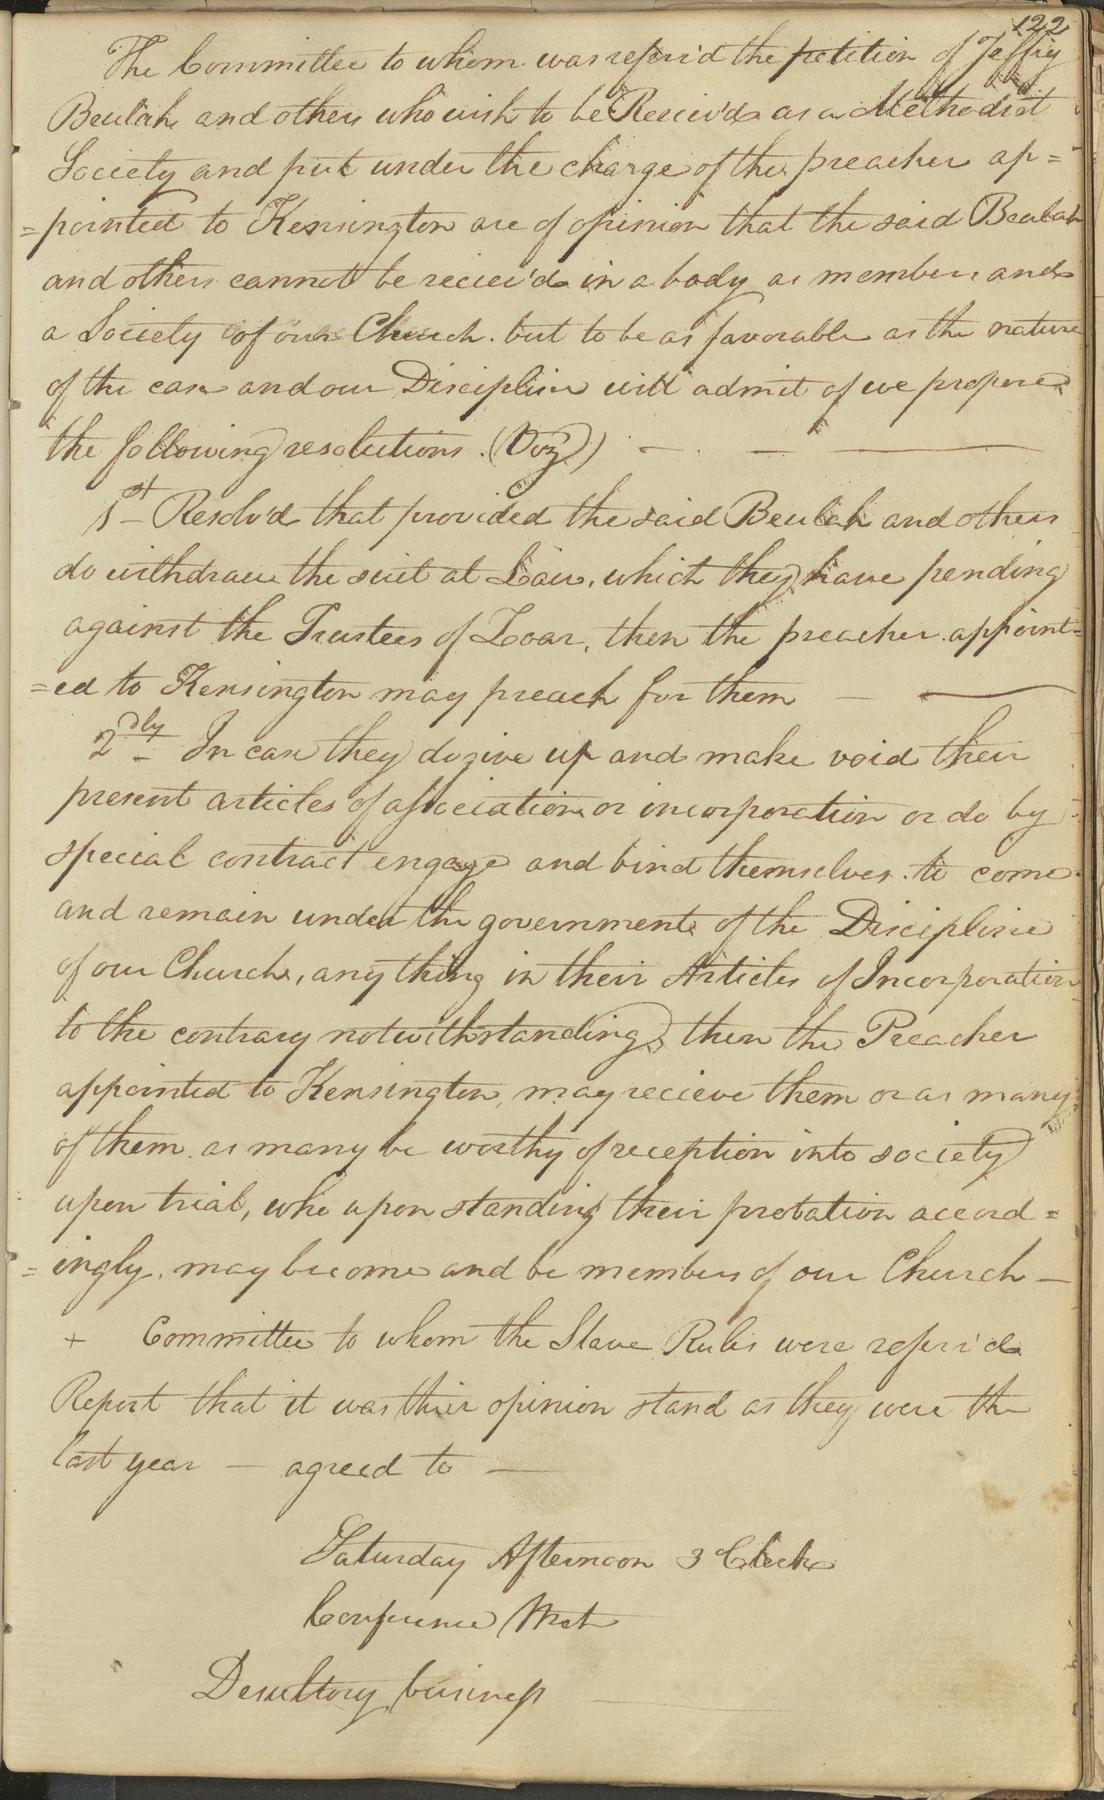 122
The Committee to whom was refer'd the petition of Jeffrey
Beulah and others who wish to be Reciev'd as a Methodist
Society and put under the charge of the preacher ap=
=pointed to Kensington are of opinion that the said Beulah
and others cannot be reciev'd in a body as members and
a Society of our Church. but to be as favorable as the nature
of the case and our Discipline will admit of we propose
the following resolutions. (Viz) — — —
1st Resolv'd that provided the said Beulah and others
do withdraw the suit at Law, which they have pending
against the Trustees of Zoar, then the preacher appoint=
=ed to Kensington may preach for them —
2dly In case they do give up and make void their
present articles of association or incorporation or do by
special contract engage and bind themselves to come
and remain under the government of the Discipline
of our Church, any thing in their Articles of Incorporation
to the contrary notwithstanding, then the Preacher
appointed to Kensington, may recieve them or as many
of them as many be worthy of reception into society
upon trial, who upon standing their probation accord=
=ingly, may become and be members of our Church —
+ Committee to whom the Slave Rules were referr'd
Report that it was their opinion stand as they were the
last year — agreed to —
Saturday Afternoon 3 Clock
Conference Met
Desultory business